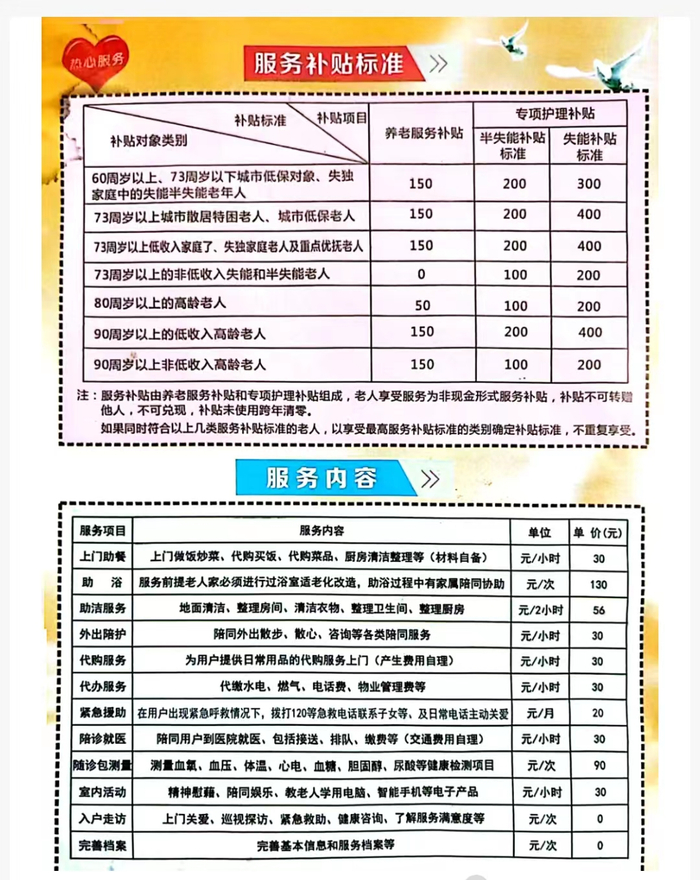 热心服务
服务补贴标准
补贴标准 补贴项目
补贴对象类别
养老服务补贴
专项护理补贴
半失能补贴标准
失能补贴标准
60周岁以上、73周岁以下城市低保对象、失独
家庭中的失能半失能老年人 150 200 300
73周岁以上城市散居特困老人、城市低保老人 150 200 400
73周岁以上低收入家庭了、失独家庭老人及重点优抚老人 150 200 400
73周岁以上的非低收入失能和半失能老人 0 100 200
80周岁以上的高龄老人 50 100 200
90周岁以上的低收入高龄老人 150 200 400
90周岁以上非低收入高龄老人 150 100 200
注：服务补贴由养老服务补贴和专项护理补贴组成，老人享受服务为非现金形式服务补贴，补贴不可转赠
他人，不可兑现，补贴未使用跨年清零。
如果同时符合以上几类服务补贴标准的老人，以享受最高服务补贴标准的类别确定补贴标准，不重复享受。
服务内容
服务项目 服务内容 单位 单 价(元)
上门助餐 上门做饭炒菜、代购买饭、代购菜品、厨房清洁整理等（材料自备） 元/小时 30
助 浴 服务前提老人家必须进行过浴室适老化改造，助浴过程中有家属陪同协助 元/次 130
助洁服务 地面清洁、整理房间、清洁衣物、整理卫生间、整理厨房 元/2小时 56
外出陪护 陪同外出散步、散心、咨询等各类陪同服务 元/小时 30
代购服务 为用户提供日常用品的代购服务上门（产生费用自理） 元/小时 30
代办服务 代缴水电、燃气、电话费、物业管理费等 元/小时 30
紧急援助 在用户出现紧急呼救情况下，拨打120等急救电话联系子女等、及日常电话主动关爱 元/月 20
陪诊就医 陪同用户到医院就医、包括接送、排队、缴费等（交通费用自理） 元/小时 30
随诊包测量 测量血氧、血压、体温、心电、血糖、胆固醇、尿酸等健康检测项目 元/次 90
室内活动 精神慰藉、陪同娱乐、教老人学用电脑、智能手机等电子产品 元/小时 30
入户走访 上门关爱、巡视探访、紧急救助、健康咨询、了解服务满意度等 元/次 0
完善档案 完善基本信息和服务档案等 元/次 0